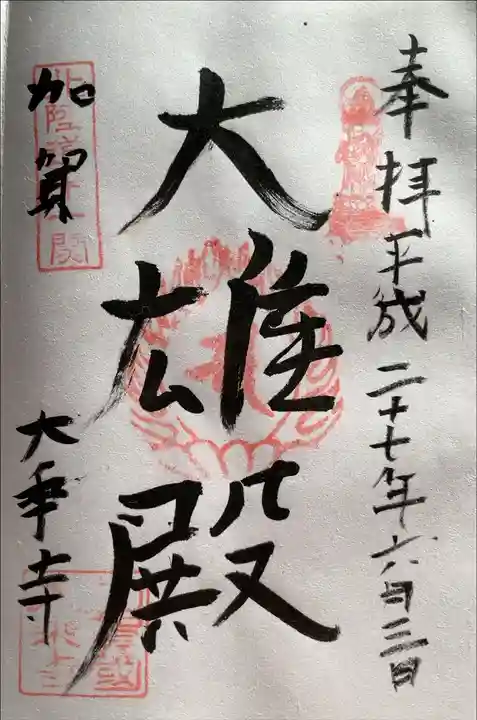 奉拝
平成二十七年六月三日
大雄殿
加賀
大乗寺